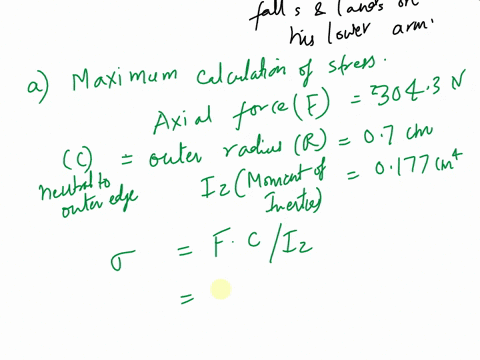 falls & lands on
his lower arm.
a) Maximum calculation of stress.
Axial force (F) = 304.3 N
(C) = outer radius (R) = 0.7 cm
neutral to
outer edge
Iz (Moment of
Inertia) = 0.177 cm⁴
σ = F. C / Iz
=